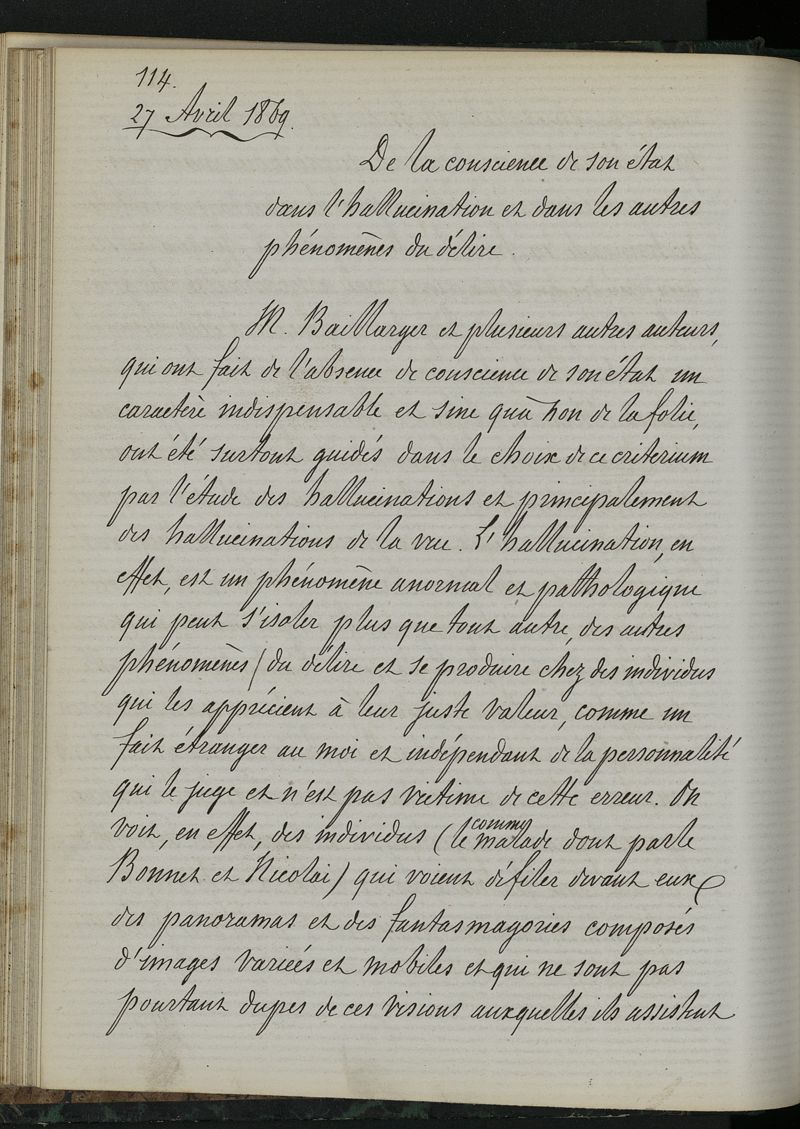 114.
27 Avril 1869.
De la conscience de son état
dans l'hallucination et dans les autres
phénomènes du délire.
M. Baillarger et plusieurs autres auteurs,
qui ont fait de l'absence de conscience de son état un
caractère indispensable et sine quâ non de la folie,
ont été surtout guidés dans le choix de ce criterium
par l'étude des hallucinations et principalement
des hallucinations de la vue. L'hallucination, en
effet, est un phénomène anormal et pathologique
qui peut s'isoler plus que tout autre, des autres
phénomènes du délire et se produire chez des individus
qui les apprécient à leur juste valeur, comme un
fait étranger au moi et indépendant de la personnalité
qui le juge et n'est pas victime de cette erreur. On
voit, en effet, des individus (comme le malade dont parle
Bonnet et Nicolaï) qui voient défiler devant eux
des panoramas et des fantasmagories composés
d'images variées et mobiles et qui ne sont pas
pourtant dupes de ces visions auxquelles ils assistent